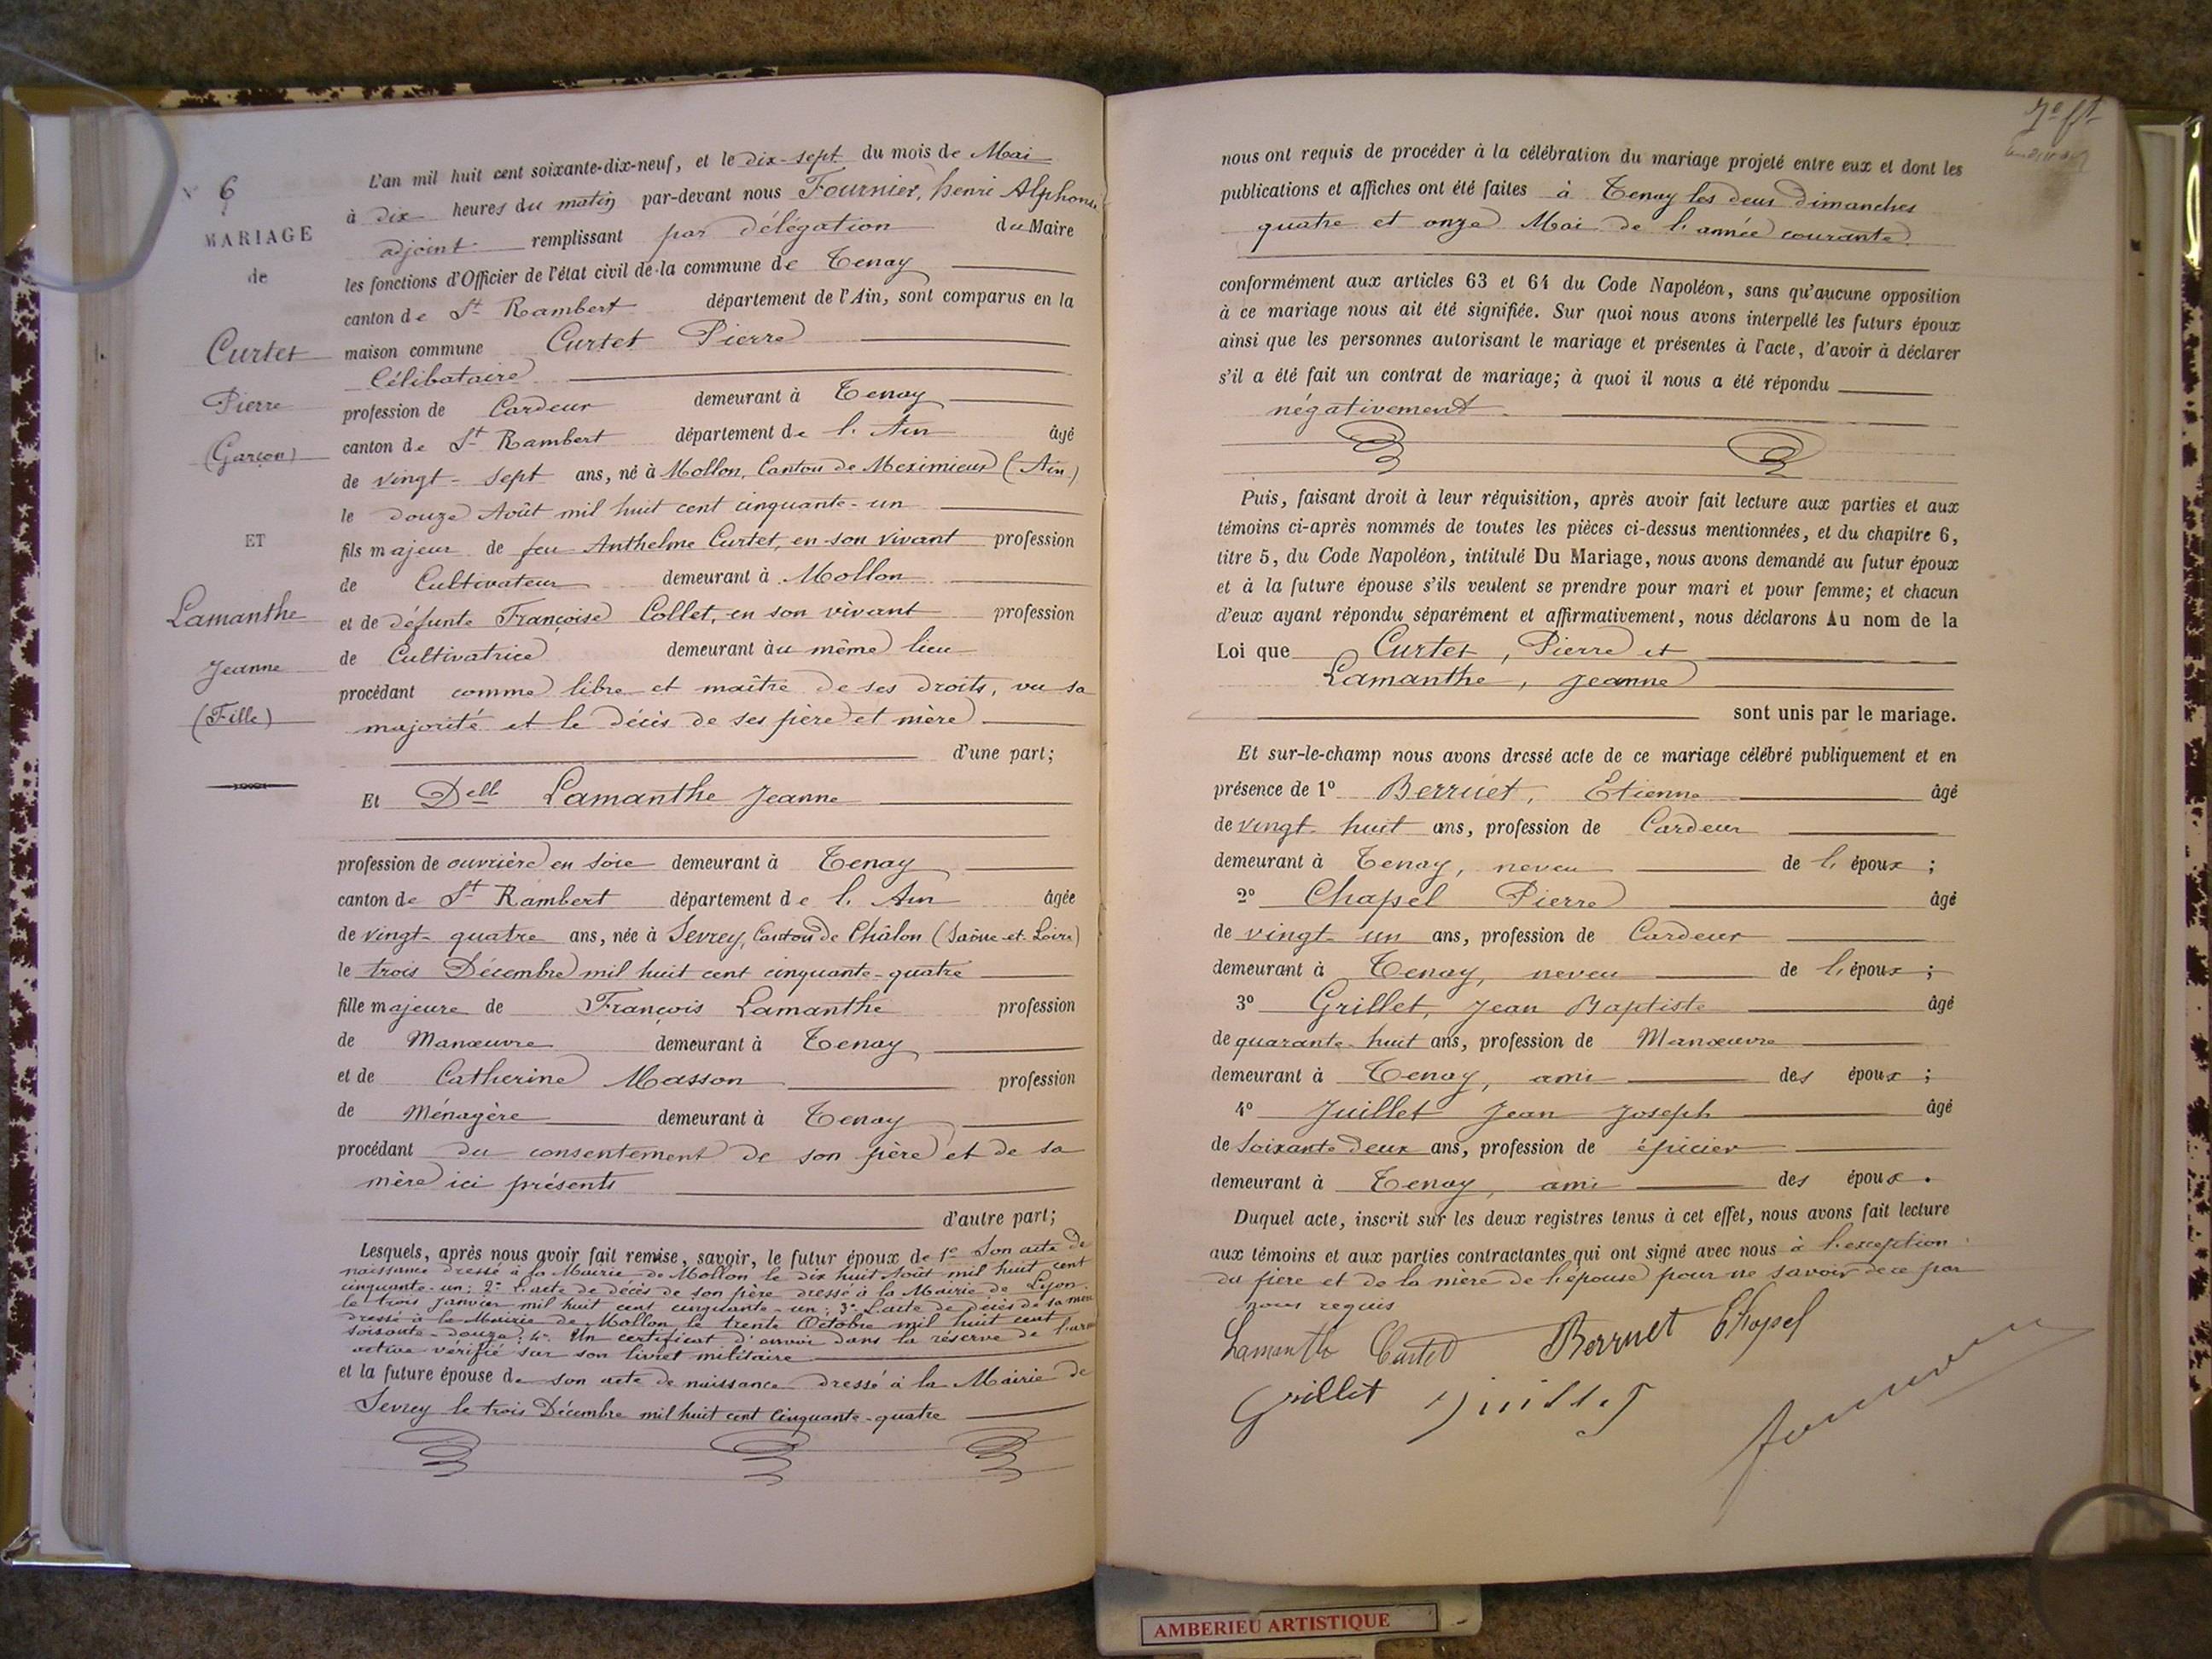 N° 6
MARIAGE
de
Curtet
Pierre
(Garçon)
ET
Lamanthe
Jeanne
(Fille)
L'an mil huit cent soixante-dix-neuf, et le dix-sept du mois de Mai
à dix heures du matin par-devant nous Fournier, henri Alphonse
adjoint remplissant par délégation du Maire
les fonctions d'Officier de l'état civil de la commune de Tenay
canton de St Rambert département de l'Ain, sont comparus en la
maison commune Curtet Pierre
Célibataire
profession de Cardeur demeurant à Tenay
canton de St Rambert département de l'Ain âgé
de vingt-sept ans, né à Mollon, Canton de Meximieux (Ain)
le douze Août mil huit cent cinquante-un
fils majeur de feu Anthelme Curtet, en son vivant profession
de Cultivateur demeurant à Mollon
et de défunte Françoise Collet, en son vivant profession
de Cultivatrice demeurant au même lieu
procédant comme libre et maître de ses droits, vu sa
majorité et le décès de ses père et mère
d'une part;
Et Delle Lamanthe Jeanne
profession de ouvrière en soie demeurant à Tenay
canton de St Rambert département de l'Ain âgée
de vingt-quatre ans, née à Sevrey, Canton de Châlon (Saône-et-Loire)
le trois Décembre mil huit cent cinquante-quatre
fille majeure de François Lamanthe profession
de Manœuvre demeurant à Tenay
et de Catherine Masson profession
de Ménagère demeurant à Tenay
procédant du consentement de son père et de sa
mère ici présents
d'autre part;
Lesquels, après nous avoir fait remise, savoir, le futur époux de 1° Son acte de
naissance dressé à la Mairie de Mollon le dix huit Août mil huit cent
cinquante-un; 2° L'acte de décès de son père dressé à la Mairie de Lyon
le trois Janvier mil huit cent cinquante-un; 3° L'acte de décès de sa mère
dressé à la Mairie de Mollon le trente Octobre mil huit cent
soixante-douze; 4° Un certificat d'envoi dans la réserve de l'armée
active vérifié sur son livret militaire
et la future épouse de son acte de naissance dressé à la Mairie de
Sevrey le trois Décembre mil huit cent cinquante-quatre
7e ft
nous ont requis de procéder à la célébration du mariage projeté entre eux et dont les
publications et affiches ont été faites à Tenay les deux Dimanches
quatre et onze Mai de l'année courante
conformément aux articles 63 et 64 du Code Napoléon, sans qu'aucune opposition
à ce mariage nous ait été signifiée. Sur quoi nous avons interpellé les futurs époux
ainsi que les personnes autorisant le mariage et présentes à l'acte, d'avoir à déclarer
s'il a été fait un contrat de mariage; à quoi il nous a été répondu
négativement.
Puis, faisant droit à leur réquisition, après avoir fait lecture aux parties et aux
témoins ci-après nommés de toutes les pièces ci-dessus mentionnées, et du chapitre 6,
titre 5, du Code Napoléon, intitulé Du Mariage, nous avons demandé au futur époux
et à la future épouse s'ils veulent se prendre pour mari et pour femme; et chacun
d'eux ayant répondu séparément et affirmativement, nous déclarons Au nom de la
Loi que Curtet, Pierre et
Lamanthe, Jeanne
sont unis par le mariage.
Et sur-le-champ nous avons dressé acte de ce mariage célébré publiquement et en
présence de 1° Berruet, Etienne âgé
de vingt-huit ans, profession de Cardeur
demeurant à Tenay, neveu de l'époux;
2° Chapel Pierre âgé
de vingt-un ans, profession de Cardeur
demeurant à Tenay, neveu de l'époux;
3° Grillet, Jean Baptiste âgé
de quarante-huit ans, profession de Manœuvre
demeurant à Tenay, ami des époux;
4° Juillet Jean Joseph âgé
de Soixante deux ans, profession de épicier
demeurant à Tenay, ami des époux.
Duquel acte, inscrit sur les deux registres tenus à cet effet, nous avons fait lecture
aux témoins et aux parties contractantes qui ont signé avec nous à l'exception
du père et de la mère de l'épouse pour ne savoir de ce par
nous requis
Lamanthe Curtet Berruet Chapel
Grillet Juillet
AMBERIEU ARTISTIQUE